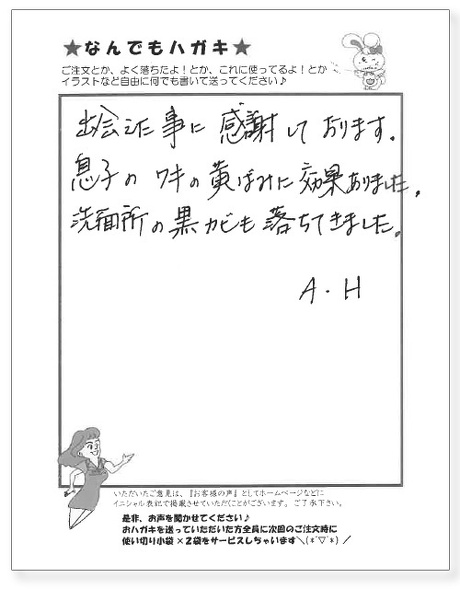 ★なんでもハガキ★
ご注文とか、よく落ちたよ！とか、これに使ってるよ！とか
イラストなど自由に何でも書いて送ってください♪
出会えた事に感謝しております。
息子のワキの黄ばみに効果ありました。
洗面所の黒カビも落ちてきました。
A・H
いただいたご意見は、『お客様の声』としてホームページなどに
イニシャル表記で掲載させていただくことがございます。ご了承下さい。
是非、お声を聞かせてください♪
おハガキを送っていただいた方全員に次回のご注文時に
使い切り小袋×2袋をサービスしちゃいます＼(*˘▽˘*)／